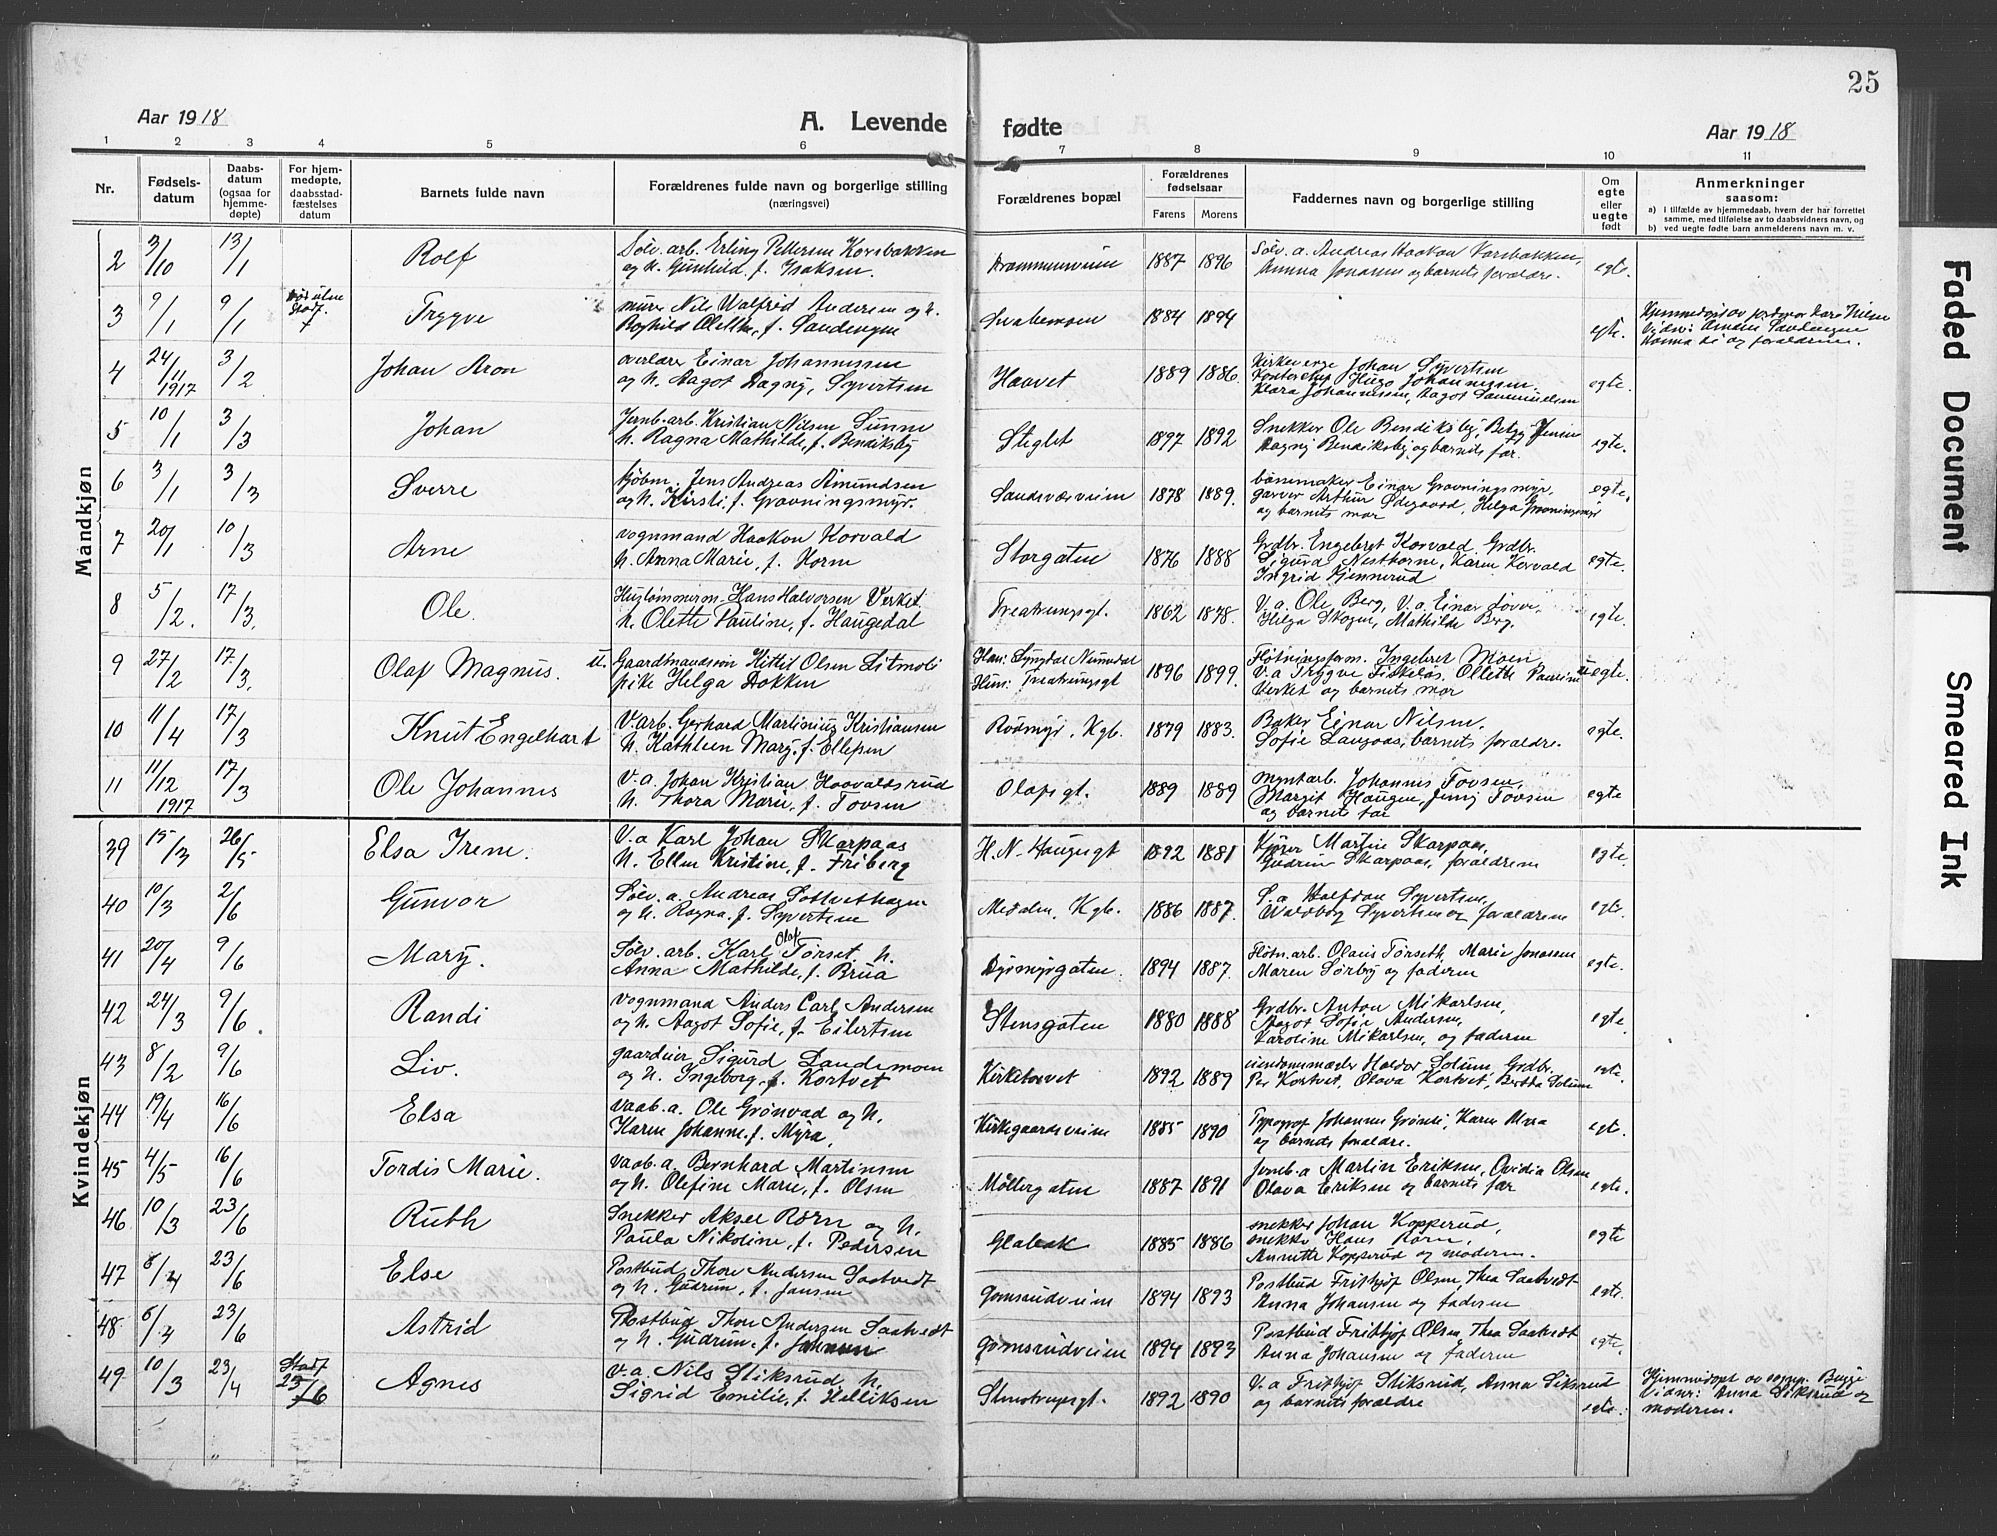 25
Aar 1918
A. Levende fødte
Aar 1918
1 2 3 4 5 6 7 8 9 10 11
Nr.
Fødsels-
datum
Daabs-
datum
(ogsaa for
hjemme-
døpte)
For hjem-
medøpte,
daabsstad-
fæstelses
datum
Barnets fulde navn
Forældrenes fulde navn og borgerlige stilling
(næringsvei)
Forældrenes bopæl
Forældrenes
fødselsaar
Farens Morens
Faddernes navn og borgerlige stilling
Om
egte
eller
uegte
født
Anmerkninger
saasom:
a) i tilfælde av hjemmedaab, hvem der har forrettet
samme, med tilføielse av to daabsvidners navn, og
b) ved uegte fødte barn anmelderens navn m. v.
Mandkjøn
2 3/10 13/1 Rolf
Sølv. arb. Erling Pettersen Korsbakken
og h. Gunhild f. Isaksen.
1887 1896
Sølv. a. Andreas Haakon Korsbakken,
Anna Jonassen og barnets forældre.
egte.
3 9/1 9/1 Trygve
murer Nils Walfrid Andersen og h.
Roghild Olette, f. Sandengen
1884 1894
egte.
4 24/11 1917 3/2 Johan Aron
overlærer Einar Johannessen
og h. Aagot Dagny, Syvertsen
Haavet 1889 1886
Kirkeverge Johan Syvertsen
Hugo Johannessen
Klara Johannessen, Aagot Sammuelsen
egte.
5 10/1 3/3 Johan
Jernb. arb. Kristian Nilsen Sunne
h. Ragna Mathilde, f. Bendiksby
Stiglet 1897 1892
Snekker Ole Bendiksby, Betzy Jensen
Dagny Bendiksby og barnets far.
egte.
6 3/1 3/3 Sverre
kjøbm. Jens Andreas Amundsen
og h. Kirsti f. Gravningsmyr.
Sandsværveien 1878 1889.
bøssmaker Einar Gravningsmyr,
garver Arthur Ødegaard, Helga Gravningsmyr
og barnets mor
egte.
7 20/1 10/3 Arne
vognmand Haakon Korvald
h. Anna Marie, f. Horne
Storgaten 1876 1888
Grdbr. Engebret Korvald. Grdbr.
Sigurd Nestborne, Karen Korvald
Ingrid Kjennerud
egte.
8 5/2. 17/3. Ole
Hustømmerm. Hans Halvorsen Verket.
h. Olette Pauline, f. Haugedal
Treatrungsgt. 1862 1878.
V. a. Ole Berg, V. a. Einar Lovve,
Helga Skogen, Mathilde Berg.
egte.
9 27/2 17/3. Olaf Magnus. u.
Gaardmandssøn Kittil Olsen Litmoli
pike Helga Dokken
Han: Lyngdal Numedal
Hun: Treatrungsgt
1896 1899.
Fløtningsform. Ingebret Moen
V. a Trygve Fiskeløs, Olette Pauline
Verket og barnets mor
uegte.
10 11/4 17/3 Knut Engelhart
V. arb. Gerhard Martinius Kristiansen
h. Kathleen Mary, f. Ellefsen
Rødmyr, Kgb. 1879 1883.
Baker Einar Nilsen,
Sofie Langaas, barnets forældre.
egte.
11 11/12 1917 17/3 Ole Johannes
V. a. Johan Kristian Haavaldsrud
h. Thora Marie, f. Tovsen
Olafsgt. 1889 1889
myntarb. Johannes Tovsen,
Margit Haugen, Jenny Tovsen
og barnets far
egte
Kvindekjøn
39 15/3 26/5 Elsa Irene.
V. a Karl Johan Skarpaas
h. Ellen Kristine, f. Friberg
H. N. Haugesgt 1892 1881
Kjører Martin Skarpaas,
Gudrun Skarpaas, forældrene
egte.
40 10/3 2/6 Gunvor
Sølv. a. Andreas Solhethagen
og h. Ragna f. Syvertsen
Medalen, Kgb. 1886 1887.
S. a Halfdan Syvertsen,
Waldborg Syvertsen og forældrene
egte.
41 20/4 9/6 Mary.
Sølv. arb. Karl Olaf Tørset, h.
Anna Mathilde, f. Brua
Dyrmyrgaten. 1894 1887.
Fløtn. arb. Olaus Tørseth, Marie Jonassen
Maren Sørby og faderen
egte.
42 24/3 9/6. Randi
vognmand Anders Carl Andersen
og h. Aagot Sofie, f. Eilertsen
Stensgaten 1880 1888
Grdbr. Anton Mikarlsen,
Aagot Sofie Andersen,
Karoline Mikarlsen, og faderen
egte.
43 8/2 9/6 Liv.
gaardeier Sigurd Landemoen
og h. Ingeborg, f. Kortvet
Kirketorvet 1892 1889
eiendomsmægler Haldor Solum, Grdbr.
Per Kortvet, Olava Kortvet, Bertha Solum
egte.
44 19/4 16/6 Elsa
Vaab. a. Ole Grønvad og h.
Karen Johanne, f. Myra,
Kirkegaardsveien 1885 1890
Typograf Johannes Grønli, Karen Myra
og barnets forældre.
egt.
45 4/5 16/6 Tordis Marie.
Vaab. a. Bernhard Martinsen
og h. Olefine Marie, f. Olsen
Møllergaten 1887 1891
Jernb. a Martin Eriksen, Ovidia Olsen
Olava Eriksen og barnets far
egte.
46 10/3 23/6 Ruth
Snekker Aksel Rørn og h.
Paula Nikoline, f. Pedersen
Glabak 1885 1886
snekker Johan Kopperud,
snekker Hans Rørn,
Annette Kopperud og moderen.
egte
47 8/4 23/6 Else
Postbud Thore Andersen Saatvedt
og h. Gudrun, f. Jansen
Gomsrudveien 1894 1893
Postbud Frithjof Olsen, Thea Saatvedt
Anna Johansen og faderen
egte.
48 6/4 23/6 Astrid
Postbud Thore Andersen Saatvedt
og h. Gudrun, f. Jansen
Gomsrudveien 1894 1893
Postbud Frithjof Olsen, Thea Saatvedt
Anna Johansen og faderen
egte.
49 10/3 23/4 Stadf 23/6 Agnes
V. a. Nils Stiksrud h.
Sigrid Emilie, f. Helliksen
1892 1890
V. a Frithjof Stiksrud, Anna Stiksrud
og barnets forældre
egte.
Hjemmedøpt av sognpr. Bugge
Vidner: Anna Stiksrud og
moderen.
Faded Document
Smeared Ink